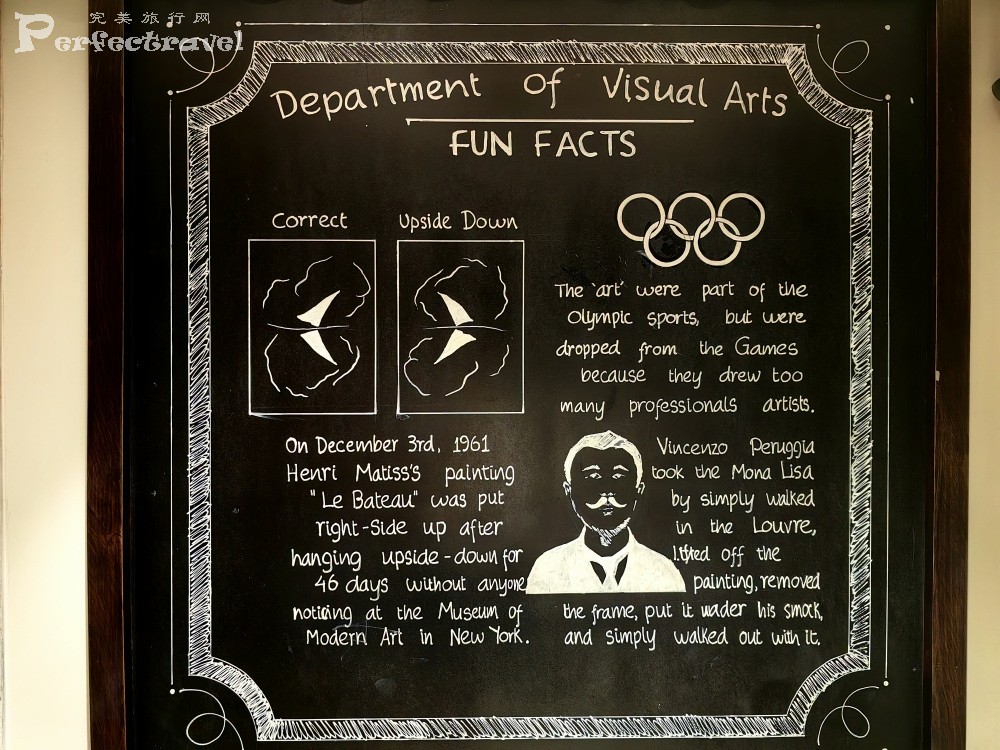 完美旅行网
Perfectravel
Department of Visual Arts
FUN FACTS
Correct
Upside Down
On December 3rd, 1961
Henri Matiss's painting
"Le Bateau" was put
right-side up after
hanging upside-down for
46 days without anyone
noticing at the Museum of
Modern Art in New York.
The 'art' were part of the
Olympic sports, but were
dropped from the Games
because they drew too
many professionals artists.
Vincenzo Peruggia
took the Mona Lisa
by simply walked
in the Louvre,
lifted off the
painting, removed
the frame, put it under his smock,
and simply walked out with it.